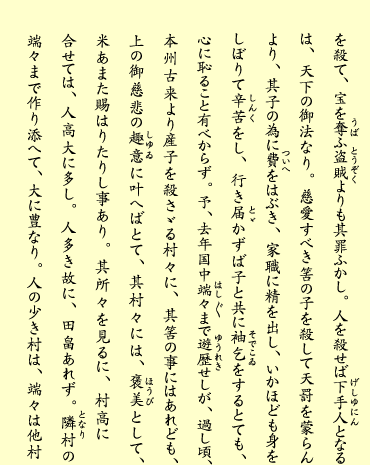 を殺て、宝を奪ふ盗賊よりも其罪ふかし。人を殺せば下手人となる
は、天下の御法なり。慈愛すべき筈の子を殺して天罰を蒙らん
より、其子の為に費をはぶき、家職に精を出し、いかほども身を
しぼりて辛苦をし、行き届かずば子と共に袖乞をするとても、
心に恥ること有べからず。予、去年国中端々まで遊歴せしが、過し頃、
本州古来より産子を殺さゞる村々に、其筈の事にはあれども、
上の御慈悲の趣意に叶へばとて、其村々には、褒美として、
米あまた賜はりたりし事あり。其所々を見るに、村高に
合せては、人高大に多し。人多き故に、田畠あれず。隣村の
端々まで作り添へて、大に豊なり。人の少き村は、端々は他村